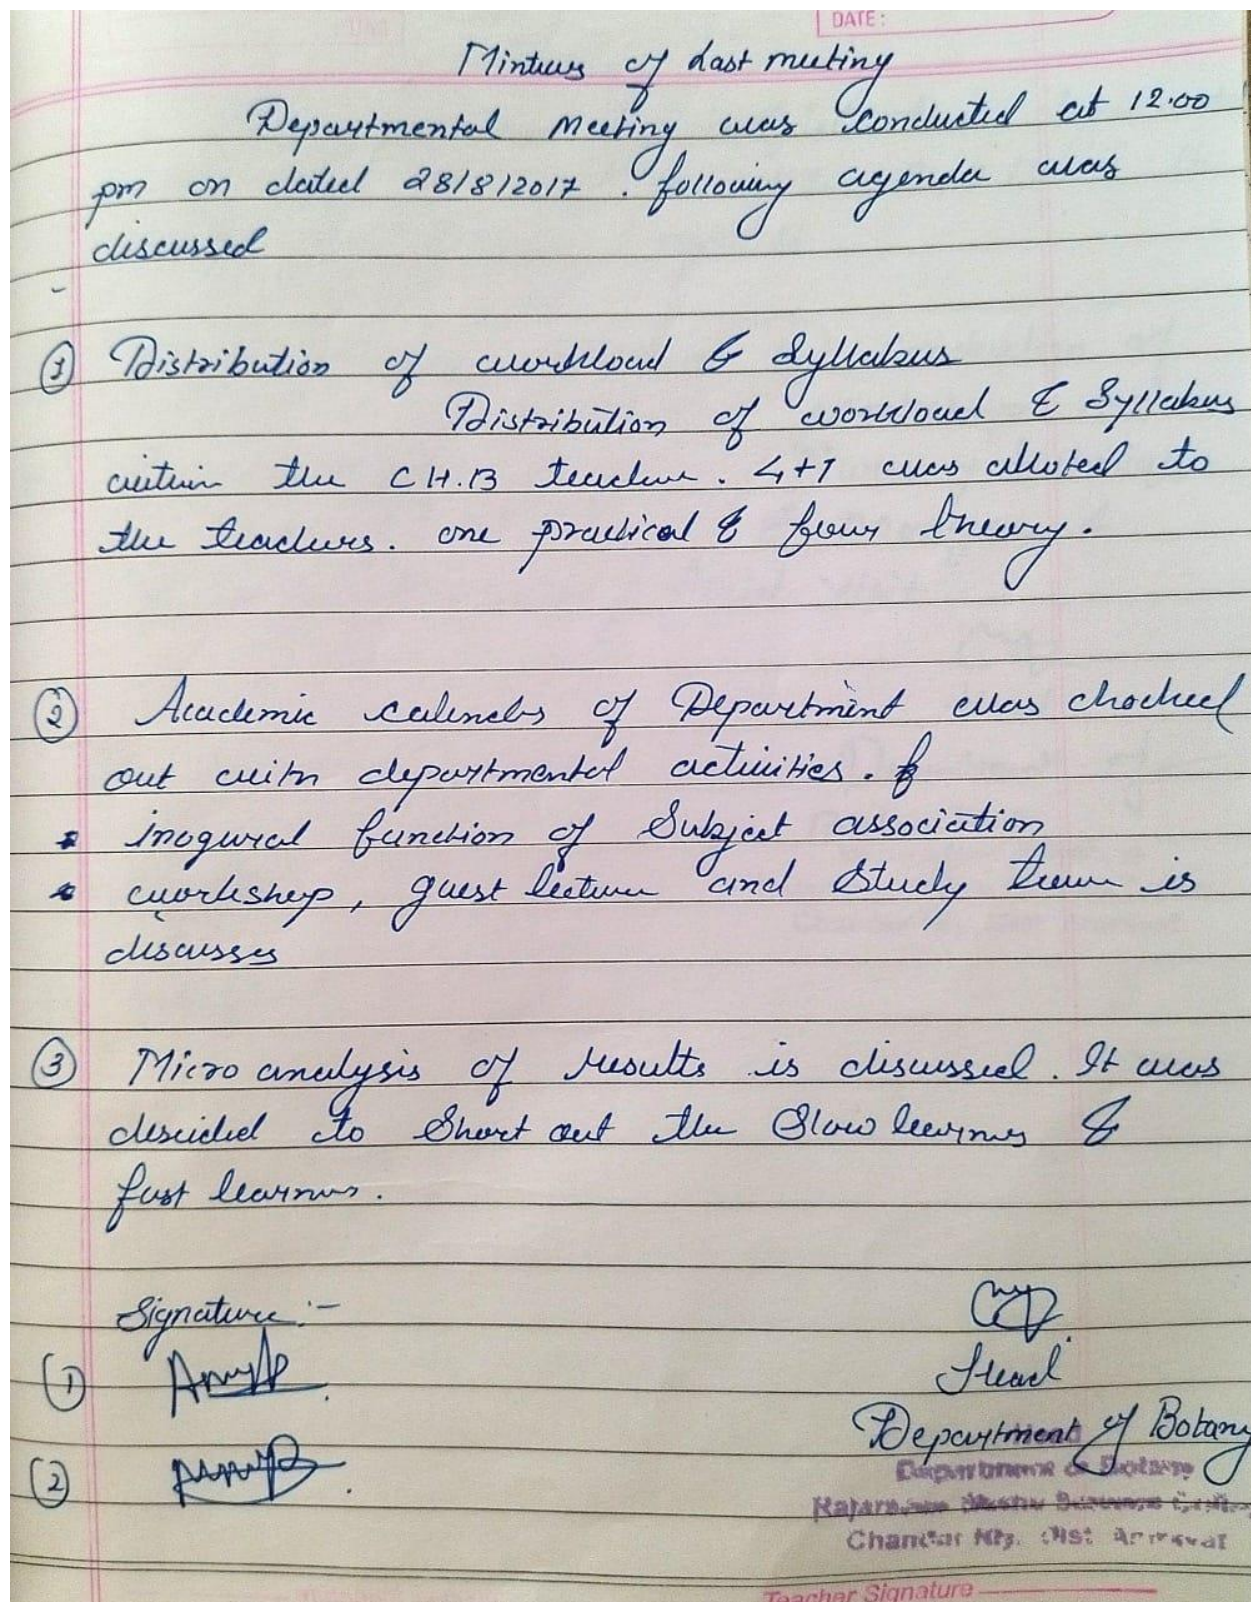 DATE:
Mintues of Last meeting
Departmental Meeting was conducted at 12.00
pm on dated 28/8/2017. following agenda was
discussed
① Distribution of workload & Syllabus
Distribution of workload & Syllabus
within the C.H.B teacher. 4+1 was alloted to
the teachers. one practical & four theory.
② Academic of Department was chocked
out with departmental activities. &
inogural function of Subject association
workshop, guest lecture and Study is
discusses
③ Micro analysis of results is discussed. It was
descided to Short out the Slow learners &
fast learners.
Signature :-
(1)
Head
Department of Botany
(2)
Department of Botany
Chandur Rly. Dist Amravati
Teacher Signature